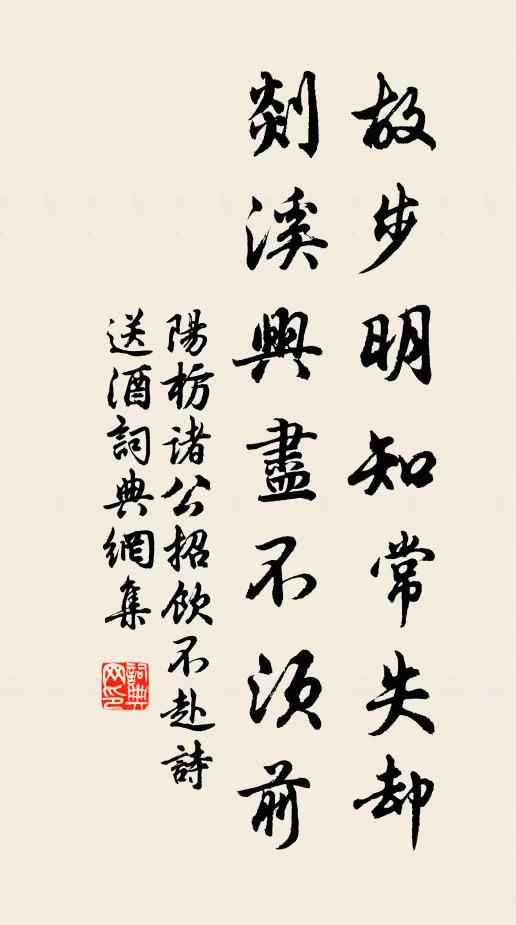 故步明知常失却
剡溪興盡不須前
陽枋诸公招飲不赴詩
送酒詞典網集
詞典
网印